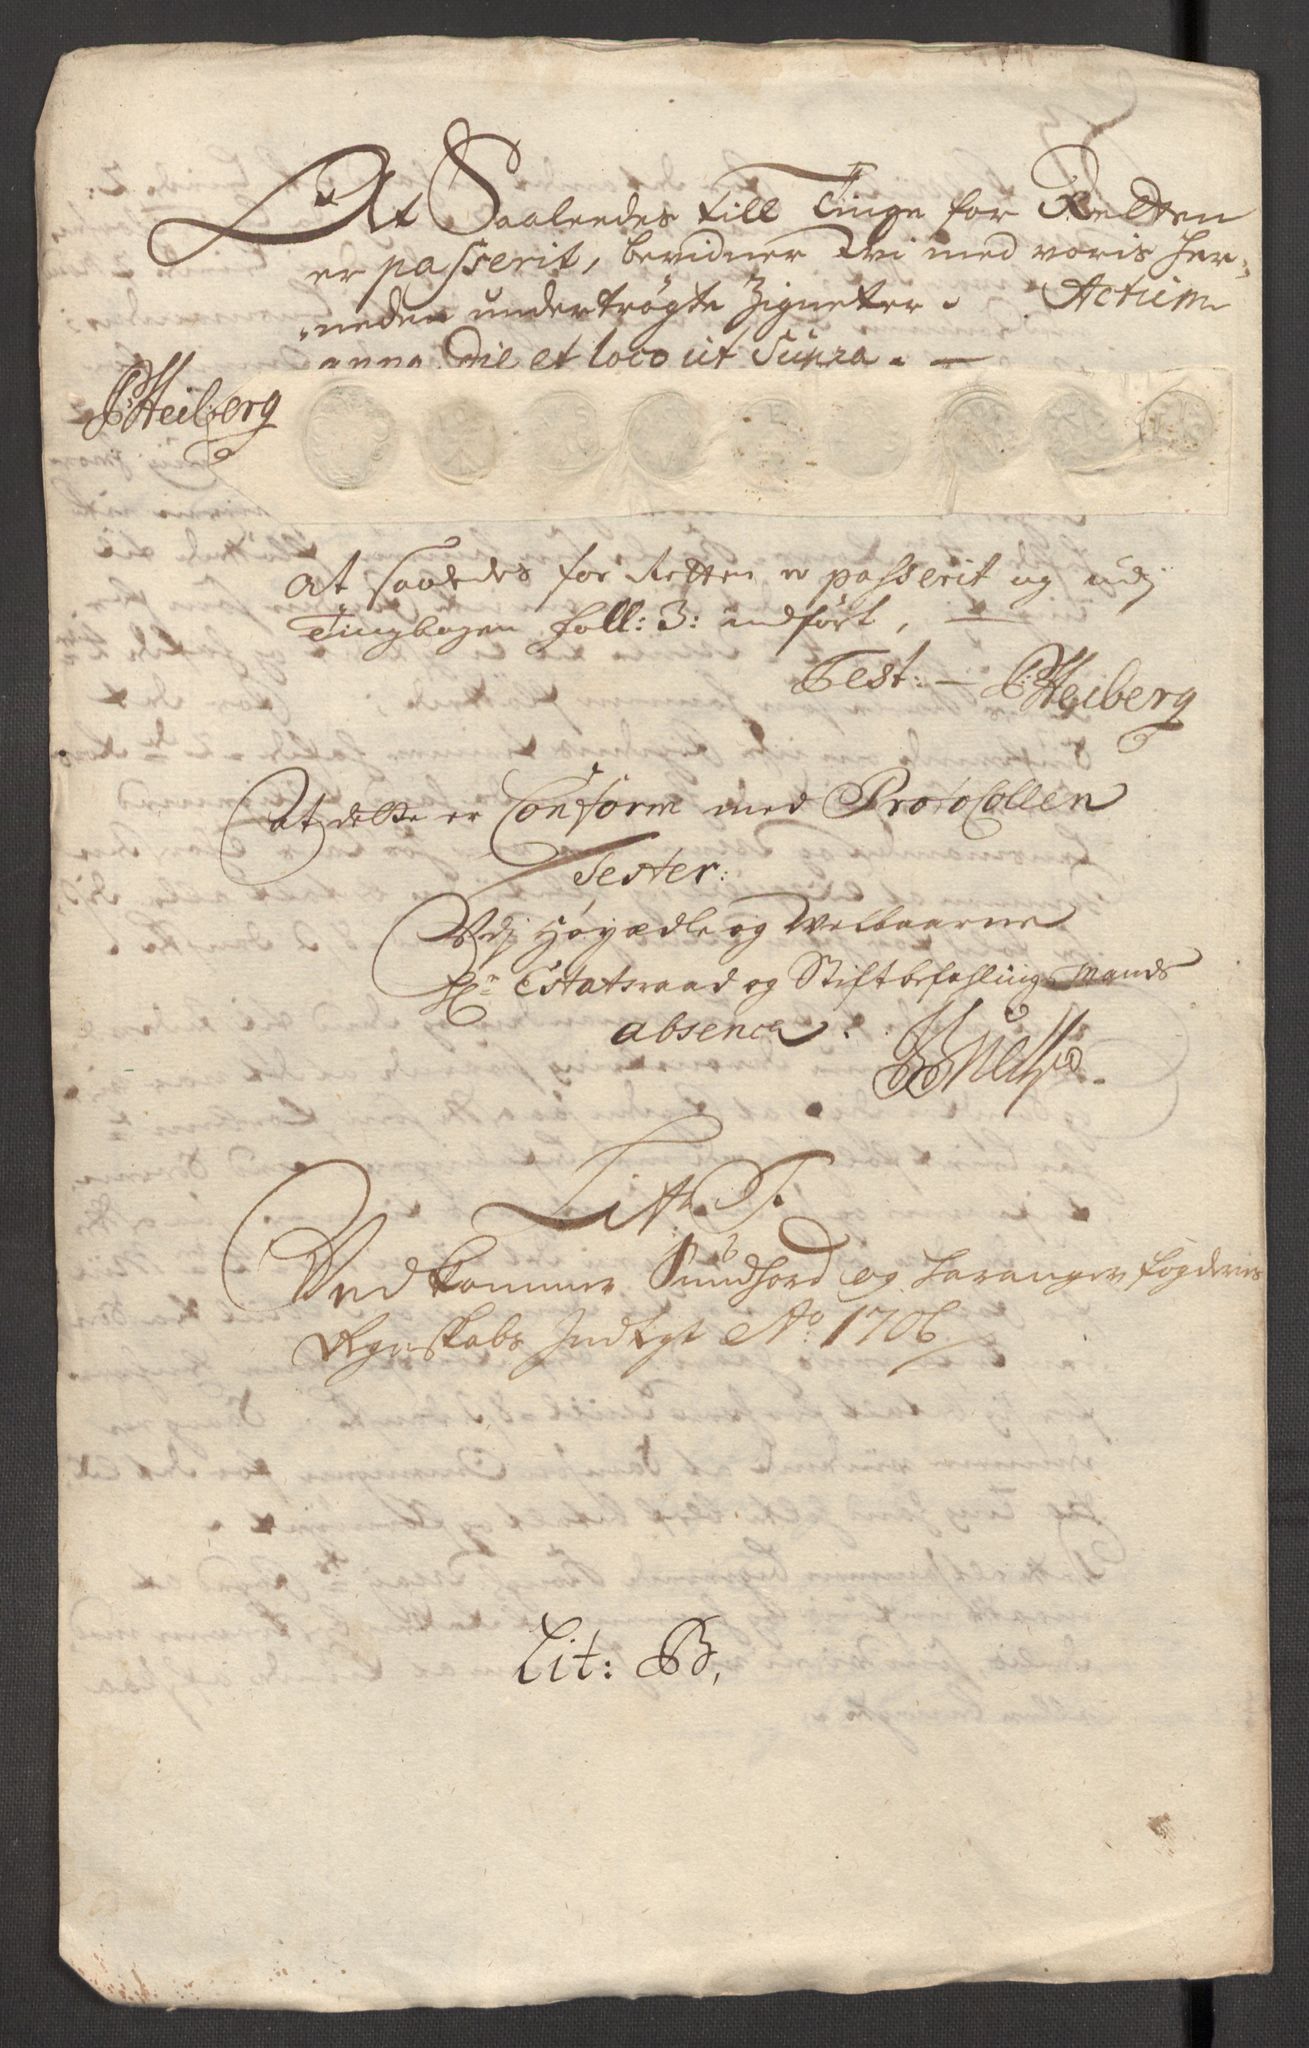 At Saaleedes till Tinge for Retten
er passerit, bevidner wi med voris her¬
neden undertrøgte Zigneter. Actum
anno die et loco ut Supra.
P: Heiberg
At saaledes for Retten er passerit og udj
Tingbogen foll: 3: indført,
Test: P: Heiberg
At dette er Conform med Protocollen
Tester:
Udj Høyædle og Welbaarne
Hr Etatsraad og Stiftbefahlingsmands
absence.
Litr. F.
Vedkommer Sundhord og Haranger fogderies
Regnskabs Indtegt Ao: 1706
Lit: B,